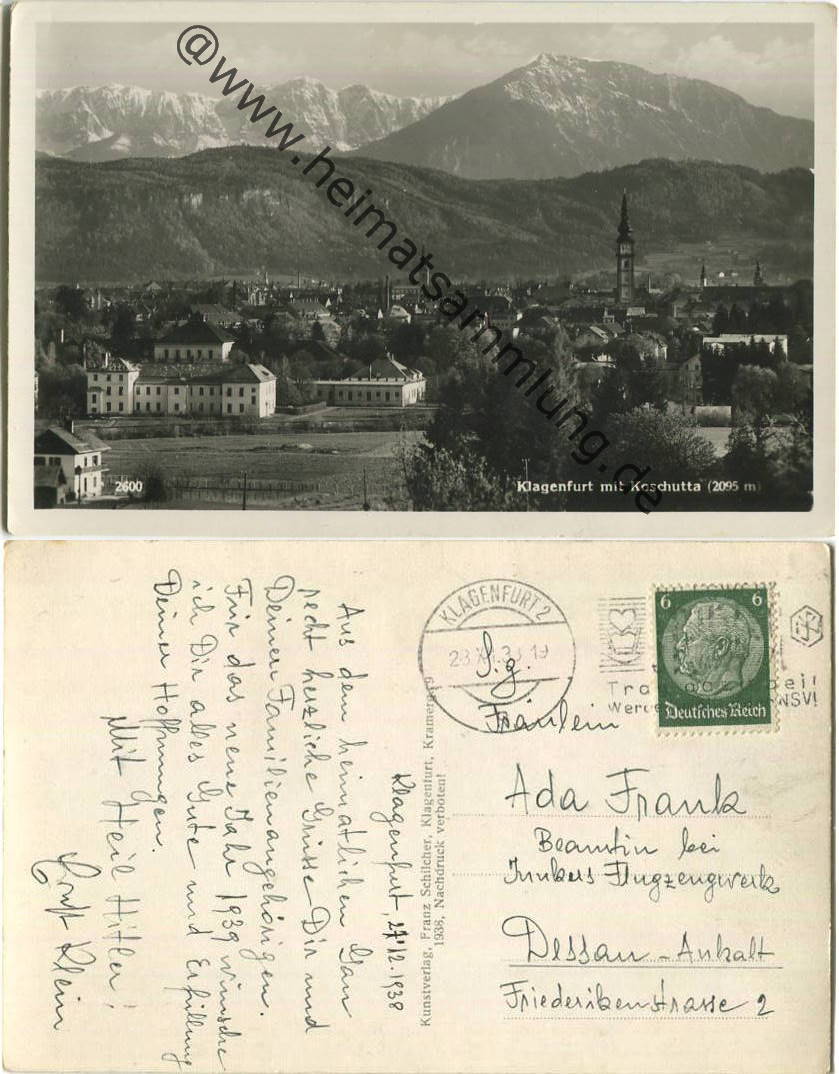 @www.heimatsammlung.de
2600
Klagenfurt mit Koschutta (2095 m)
Klagenfurt, 27.12.1938
Aus dem heimatlichen Gau
recht herzliche Grüsse Dir und
Deinen Familienangehörigen.
Für das neue Jahr 1939 wünsche
ich Dir alles Gute und Erfüllung
Deiner Hoffnungen.
Mit Heil Hitler!
Ernst Klein
Kunstverlag, Franz Schilcher, Klagenfurt,
1938, Nachdruck verboten!
KLAGENFURT 2
6 6
Deutsches Reich
NSV!
S.g.
Fräulein
Ada Frank
Beamtin bei
Junkers Flugzeugwerk
Dessau - Anhalt
Friederikenstrasse 2